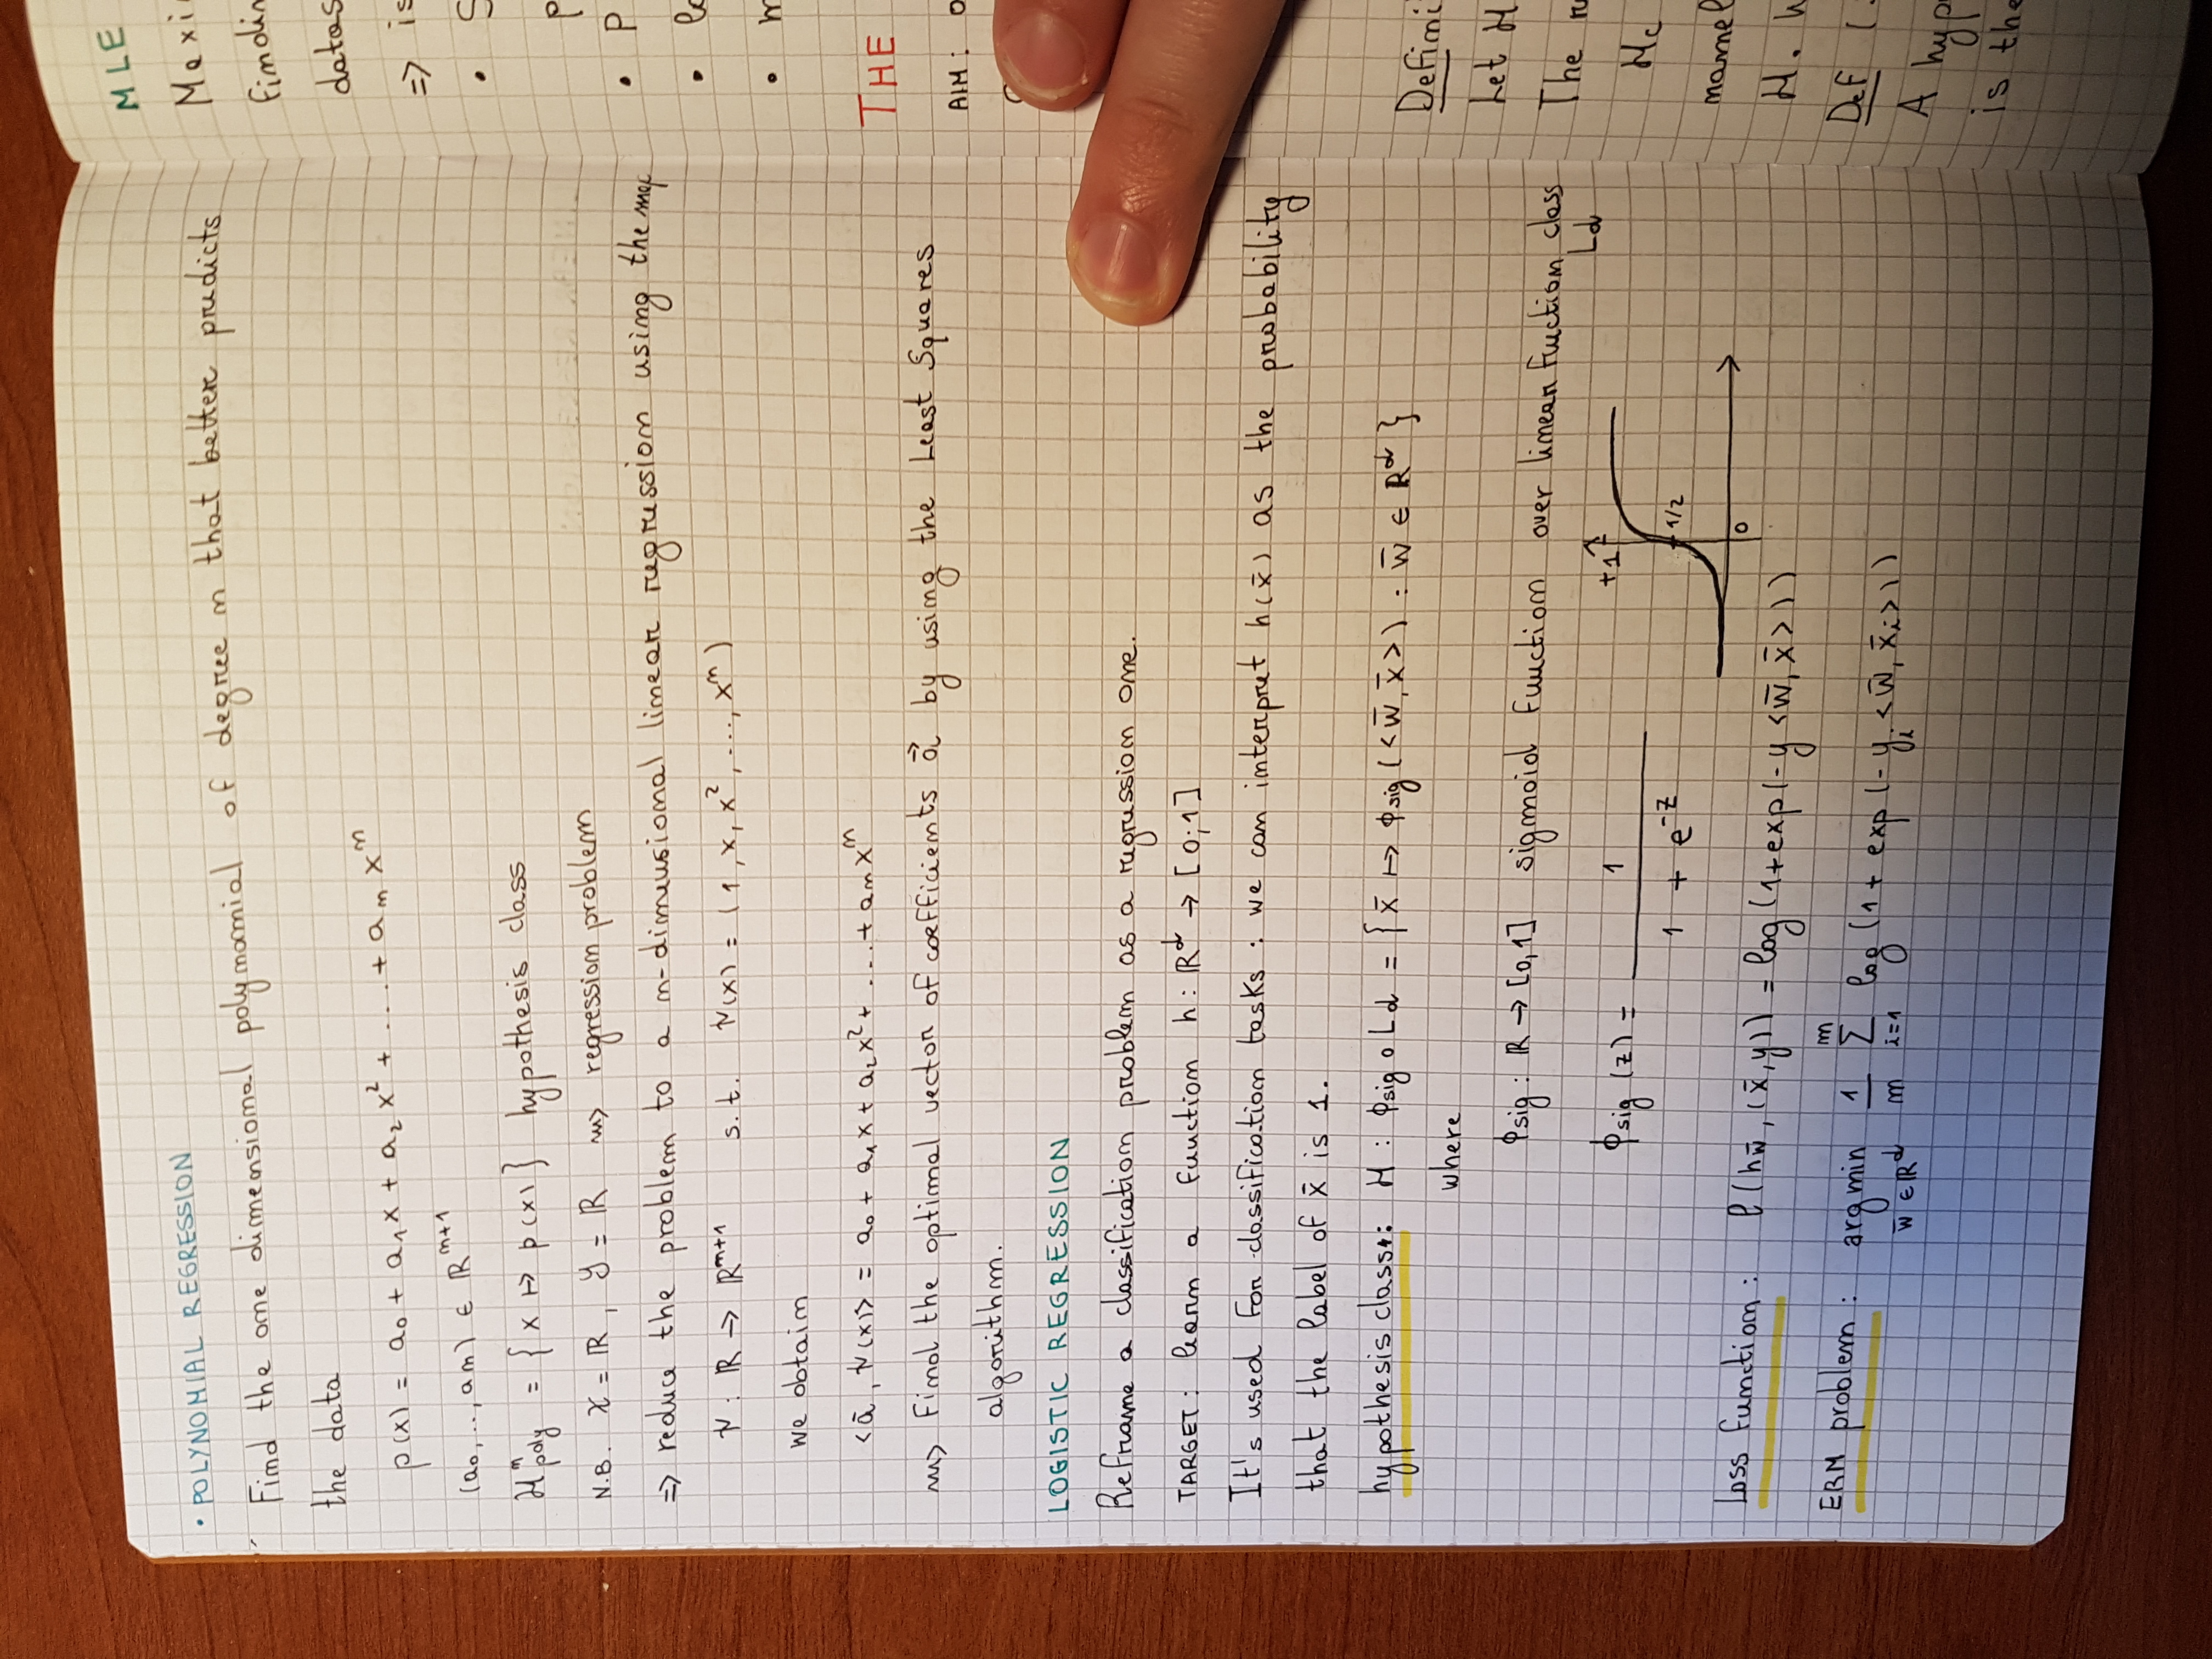 • POLYNOMIAL REGRESSION
Find the one dimensional polynomial of degree n that better predicts
the data
p(x) = a₀ + a₁x + a₂x² + ... + aₙxⁿ
(a₀, .., aₙ) ∈ ℝⁿ⁺¹
Hⁿpoly = {x ↦ p(x)} hypothesis class
N.B. X = ℝ, Y = ℝ ⇝ regression problem
=> reduce the problem to a n-dimensional linear regression using the map
ψ : ℝ → ℝⁿ⁺¹ s.t. ψ(x) = (1, x, x², ..., xⁿ)
we obtain
<ā, ψ(x)> = a₀ + a₁x + a₂x² + ... + aₙxⁿ
⇝ Find the optimal vector of coefficients a⃗ by using the Least Squares
algorithm.
LOGISTIC REGRESSION
Reframe a classification problem as a regression one.
TARGET: learn a function h: ℝᵈ → [0;1]
It's used for classification tasks: we can interpret h(x̄) as the probability
that the label of x̄ is 1.
hypothesis class: H : ϕsig ∘ Ld = {x̄ ↦ ϕsig(<w̄, x̄>) : w̄ ∈ ℝᵈ}
where
ϕsig : ℝ → [0,1] sigmoid function over linear fuction class
Ld
ϕsig (z) = 1 / (1 + e⁻ᶻ)
+1
1/2
0
Loss function: ℓ(hw̄, (x̄,y)) = log(1+exp(-y<w̄, x̄>))
ERM problem: argmin w̄ ∈ ℝᵈ 1/m Σ i=1 m log(1 + exp(-yᵢ<w̄, x̄ᵢ>))
MLE
Maxi
findin
datas
=> is
• S
p
• P
• lo
• m
THE
AIM: o
Defini
Let H
The ru
Hc
namel
H. W
Def (.
A hyp
is the